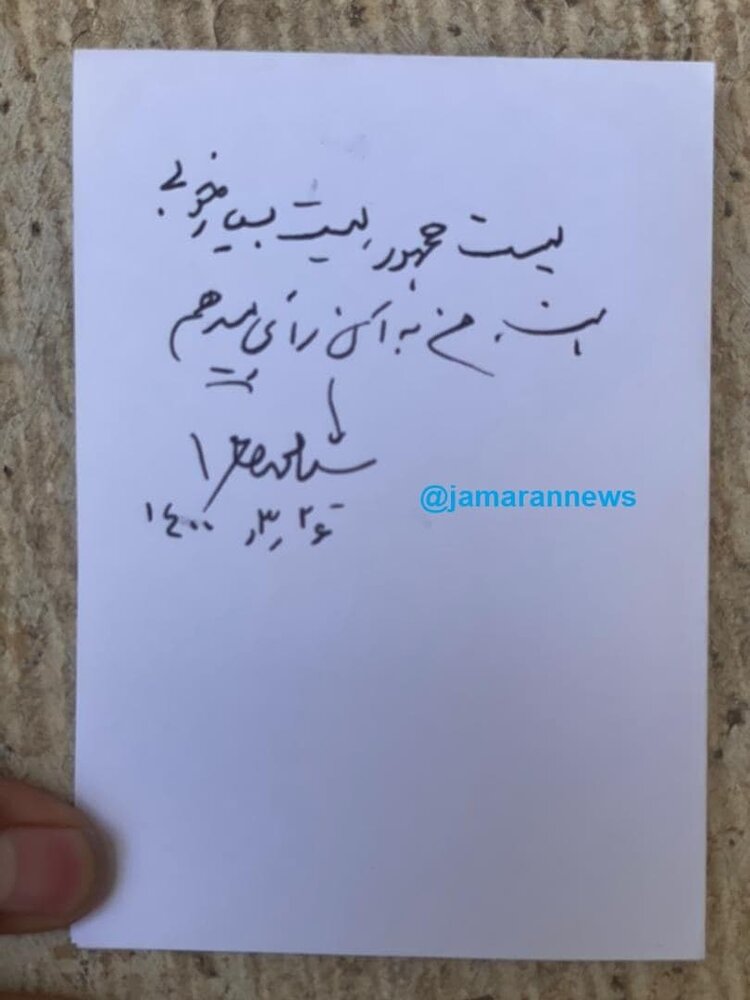 لیست جمهور لیست بسیار خوبی
است. من به آن رأی میدهم
@jamarannews
۱۴۰۰ ر۳ر ۲۶